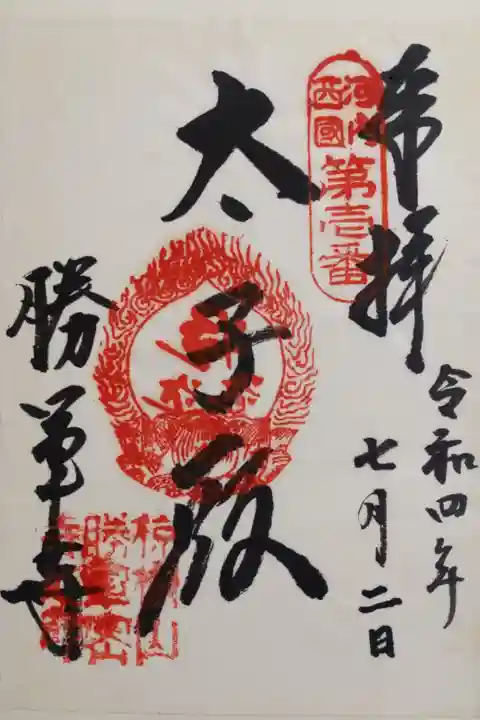 河内
西國
第壱番
奉拝
令和四年
七月二日
太子殿
勝軍寺